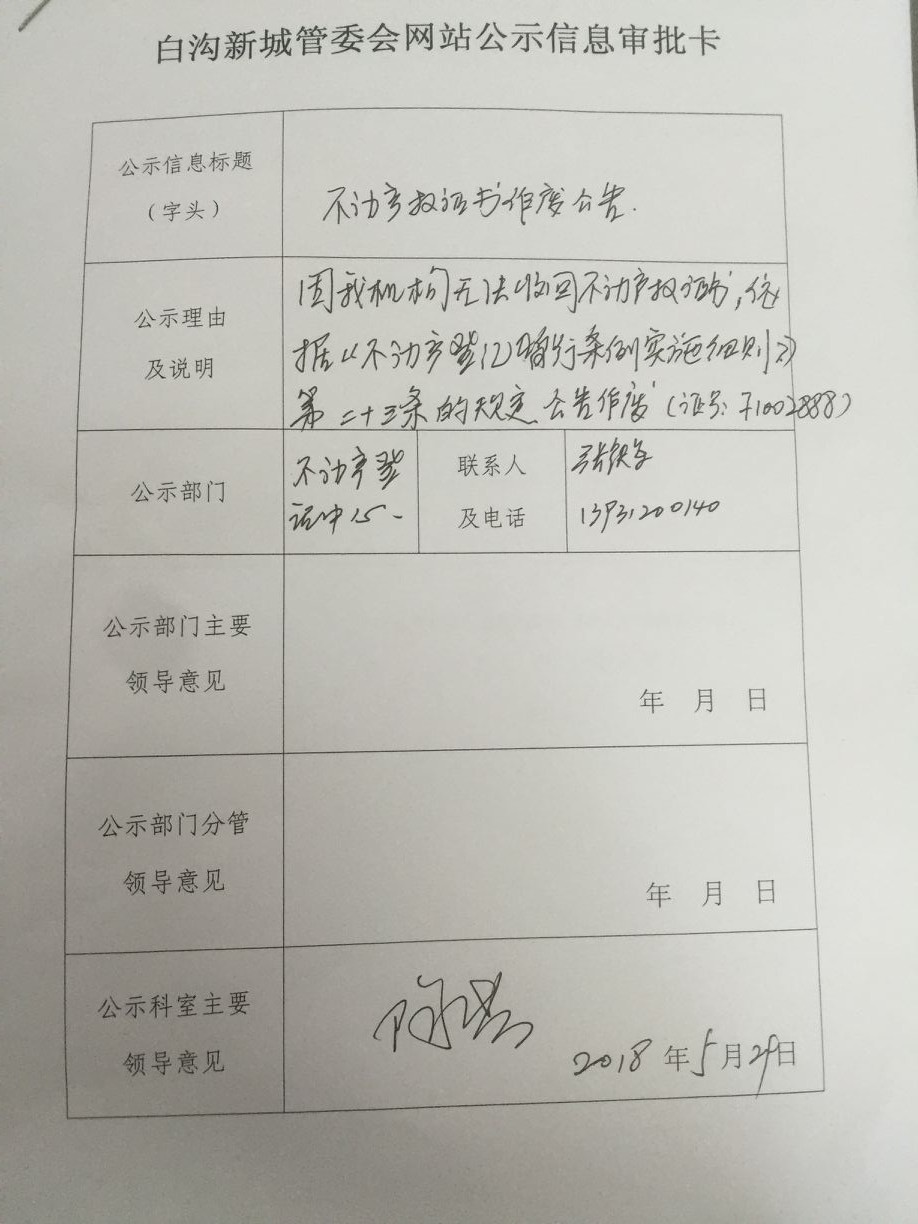 白沟新城管委会网站公示信息审批卡
公示信息标题
（字头）
不动产权证书作废公告.
公示理由
及说明
因我机构无法收回不动产权证书，依
据《不动产登记暂行条例实施细则》
第二十三条的规定公告作废（证号：71002888）
公示部门
不动产登
记中心
联系人
及电话
13931200140
公示部门主要
领导意见
年 月 日
公示部门分管
领导意见
年 月 日
公示科室主要
领导意见
2018年5月29日